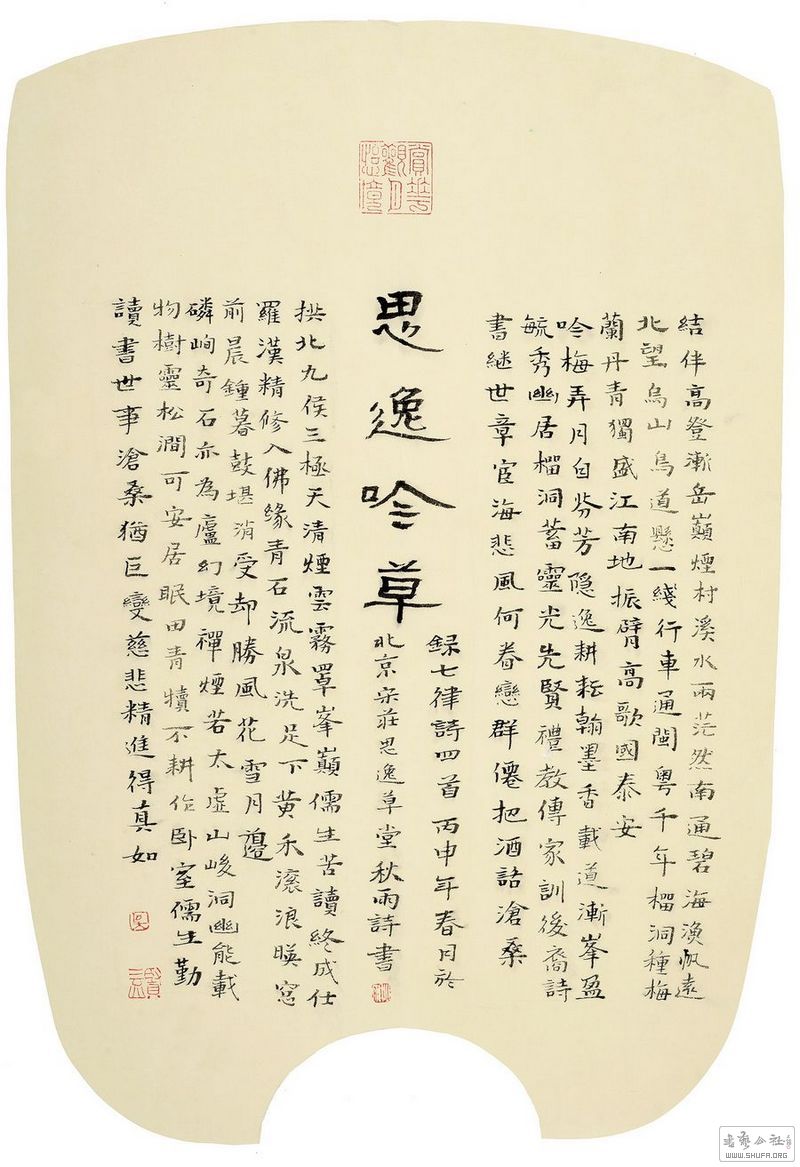 結伴高登漸岳巔煙村溪水兩茫然南通碧海漁帆遠
北望烏山鳥道懸一綫行車通閩粵千年榴洞種梅
蘭丹青獨盛江南地振臂高歌國泰安
吟梅弄月自芬芳隐逸耕耘翰墨香載道漸峯盈
毓秀幽居榴洞蓄靈光先賢禮教傳家訓後裔詩
書継世章宦海悲風何眷戀群僊把酒話滄桑
思逸吟草
録七律詩四首丙申年春月於
北京宋莊思逸草堂秋雨詩書
拱北九侯三極天清煙雲霧罩峯巔儒生苦讀終成仕
羅漢精修入佛緣青石流泉洗足下黄禾滚浪暎窓
前晨鍾暮鼓堪消受却勝風花雪月邉
磷峋奇石亦為廬幻境禪煙若太虛山峻洞幽能載
物樹靈松澗可安居眠田青犢不耕作卧室儒生勤
讀書世事滄桑猶巨變慈悲精進得真如
WWW.SHUFA.ORG